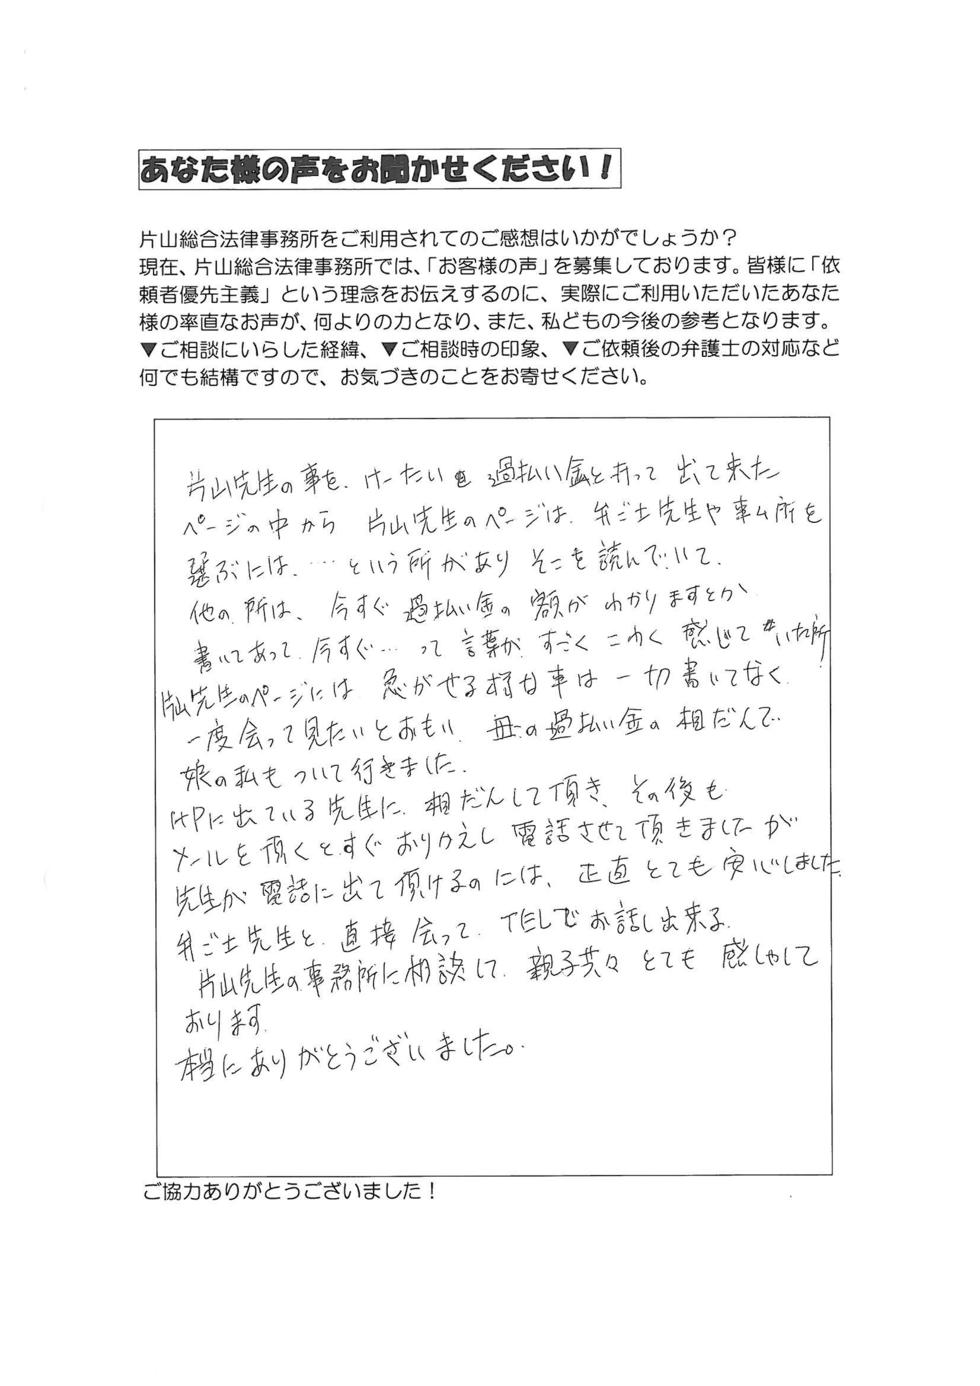 あなた様の声をお聞かせください！
片山総合法律事務所をご利用されてのご感想はいかがでしょうか？
現在、片山総合法律事務所では、「お客様の声」を募集しております。皆様に「依
頼者優先主義」という理念をお伝えするのに、実際にご利用いただいたあなた
様の率直なお声が、何よりの力となり、また、私どもの今後の参考となります。
▼ご相談にいらした経緯、▼ご相談時の印象、▼ご依頼後の弁護士の対応など
何でも結構ですので、お気づきのことをお寄せください。
片山先生の事を、けーたいを過払い金と打って出て来た
ページの中から 片山先生のページは、弁ご士先生や事ム所を
選ぶには、…という所があり そこを読んでいて、
他の所は、今すぐ過払い金の額がわかりますとか
書いてあって、今すぐ…って言葉が、すごくこわく感じていた所
片山先生のページには 急がせる様な事は一切書いてなく、
一度会って見たいとおもい、母の過払い金の相だんで
娘の私もついて行きました。
HPに出ている先生に、相だんして頂き、その後も
メールを頂くとすぐおりかえし電話させて頂きましたが
先生が電話に出て頂けるのには、正直とても安心しました。
弁ご士先生と、直接会って、TELでお話し出来る。
片山先生の事務所に相談して、親子共々とても感しゃして
おります。
本当にありがとうございました。
ご協力ありがとうございました！